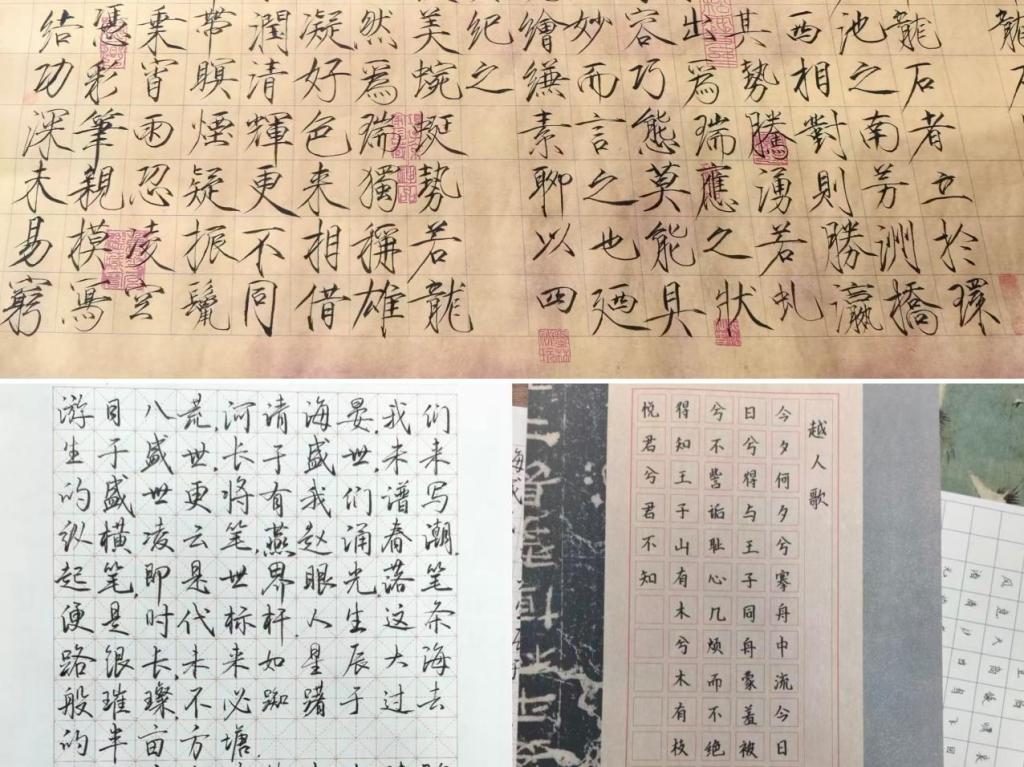 龍石
龍石者立於環
池之南芳洲橋
西相對則勝瀛
其勢騰湧若虬
出爲瑞應之状
容巧態莫能具
妙而言之也廼
繪縑素聊以四
纪之
美蜿蜓勢若龍
然爲瑞獨稱雄
凝好色来相借
潤清輝更不同
帶瞑煙疑振鬣
乗宵雨忍凌空
憑彩筆親模寫
结功深未易窮
游目八荒,河请海晏,我们
生于盛世,长于盛世,未来
的盛世更将有我们谱写
纵横凌云笔,燕赵涌春潮.
起笔,即是世界眼光,落笔
便是时代标杆,人生这条
路很长,未来如星辰大海
般璀璨,不必踟躇于过去
的半亩方塘.
越人歌
今夕何夕兮搴舟中流今日
日兮得与王子同舟蒙羞被
兮不訾诟耻心几烦而不绝
得知王子山有木兮木有枝
悦君兮君不知